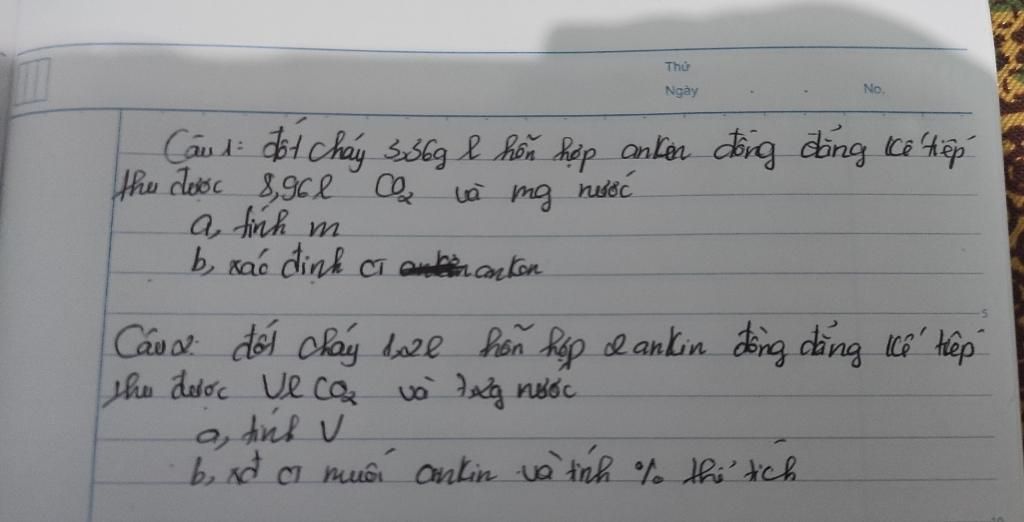 Thứ
Ngày . . No.
Câu 1: đốt cháy 3,36g l hỗn hợp anken đồng đẳng kế tiếp
thu được 8,96l CO2 và mg nước
a, tính m
b, xác định ct anken
5
Câu 2: đốt cháy 1,02l hỗn hợp 2 ankin đồng đẳng kế tiếp
thu được Vl CO2 và 7,2g nước
a, tính V
b, xđ ct muối ankin và tính % thể tích